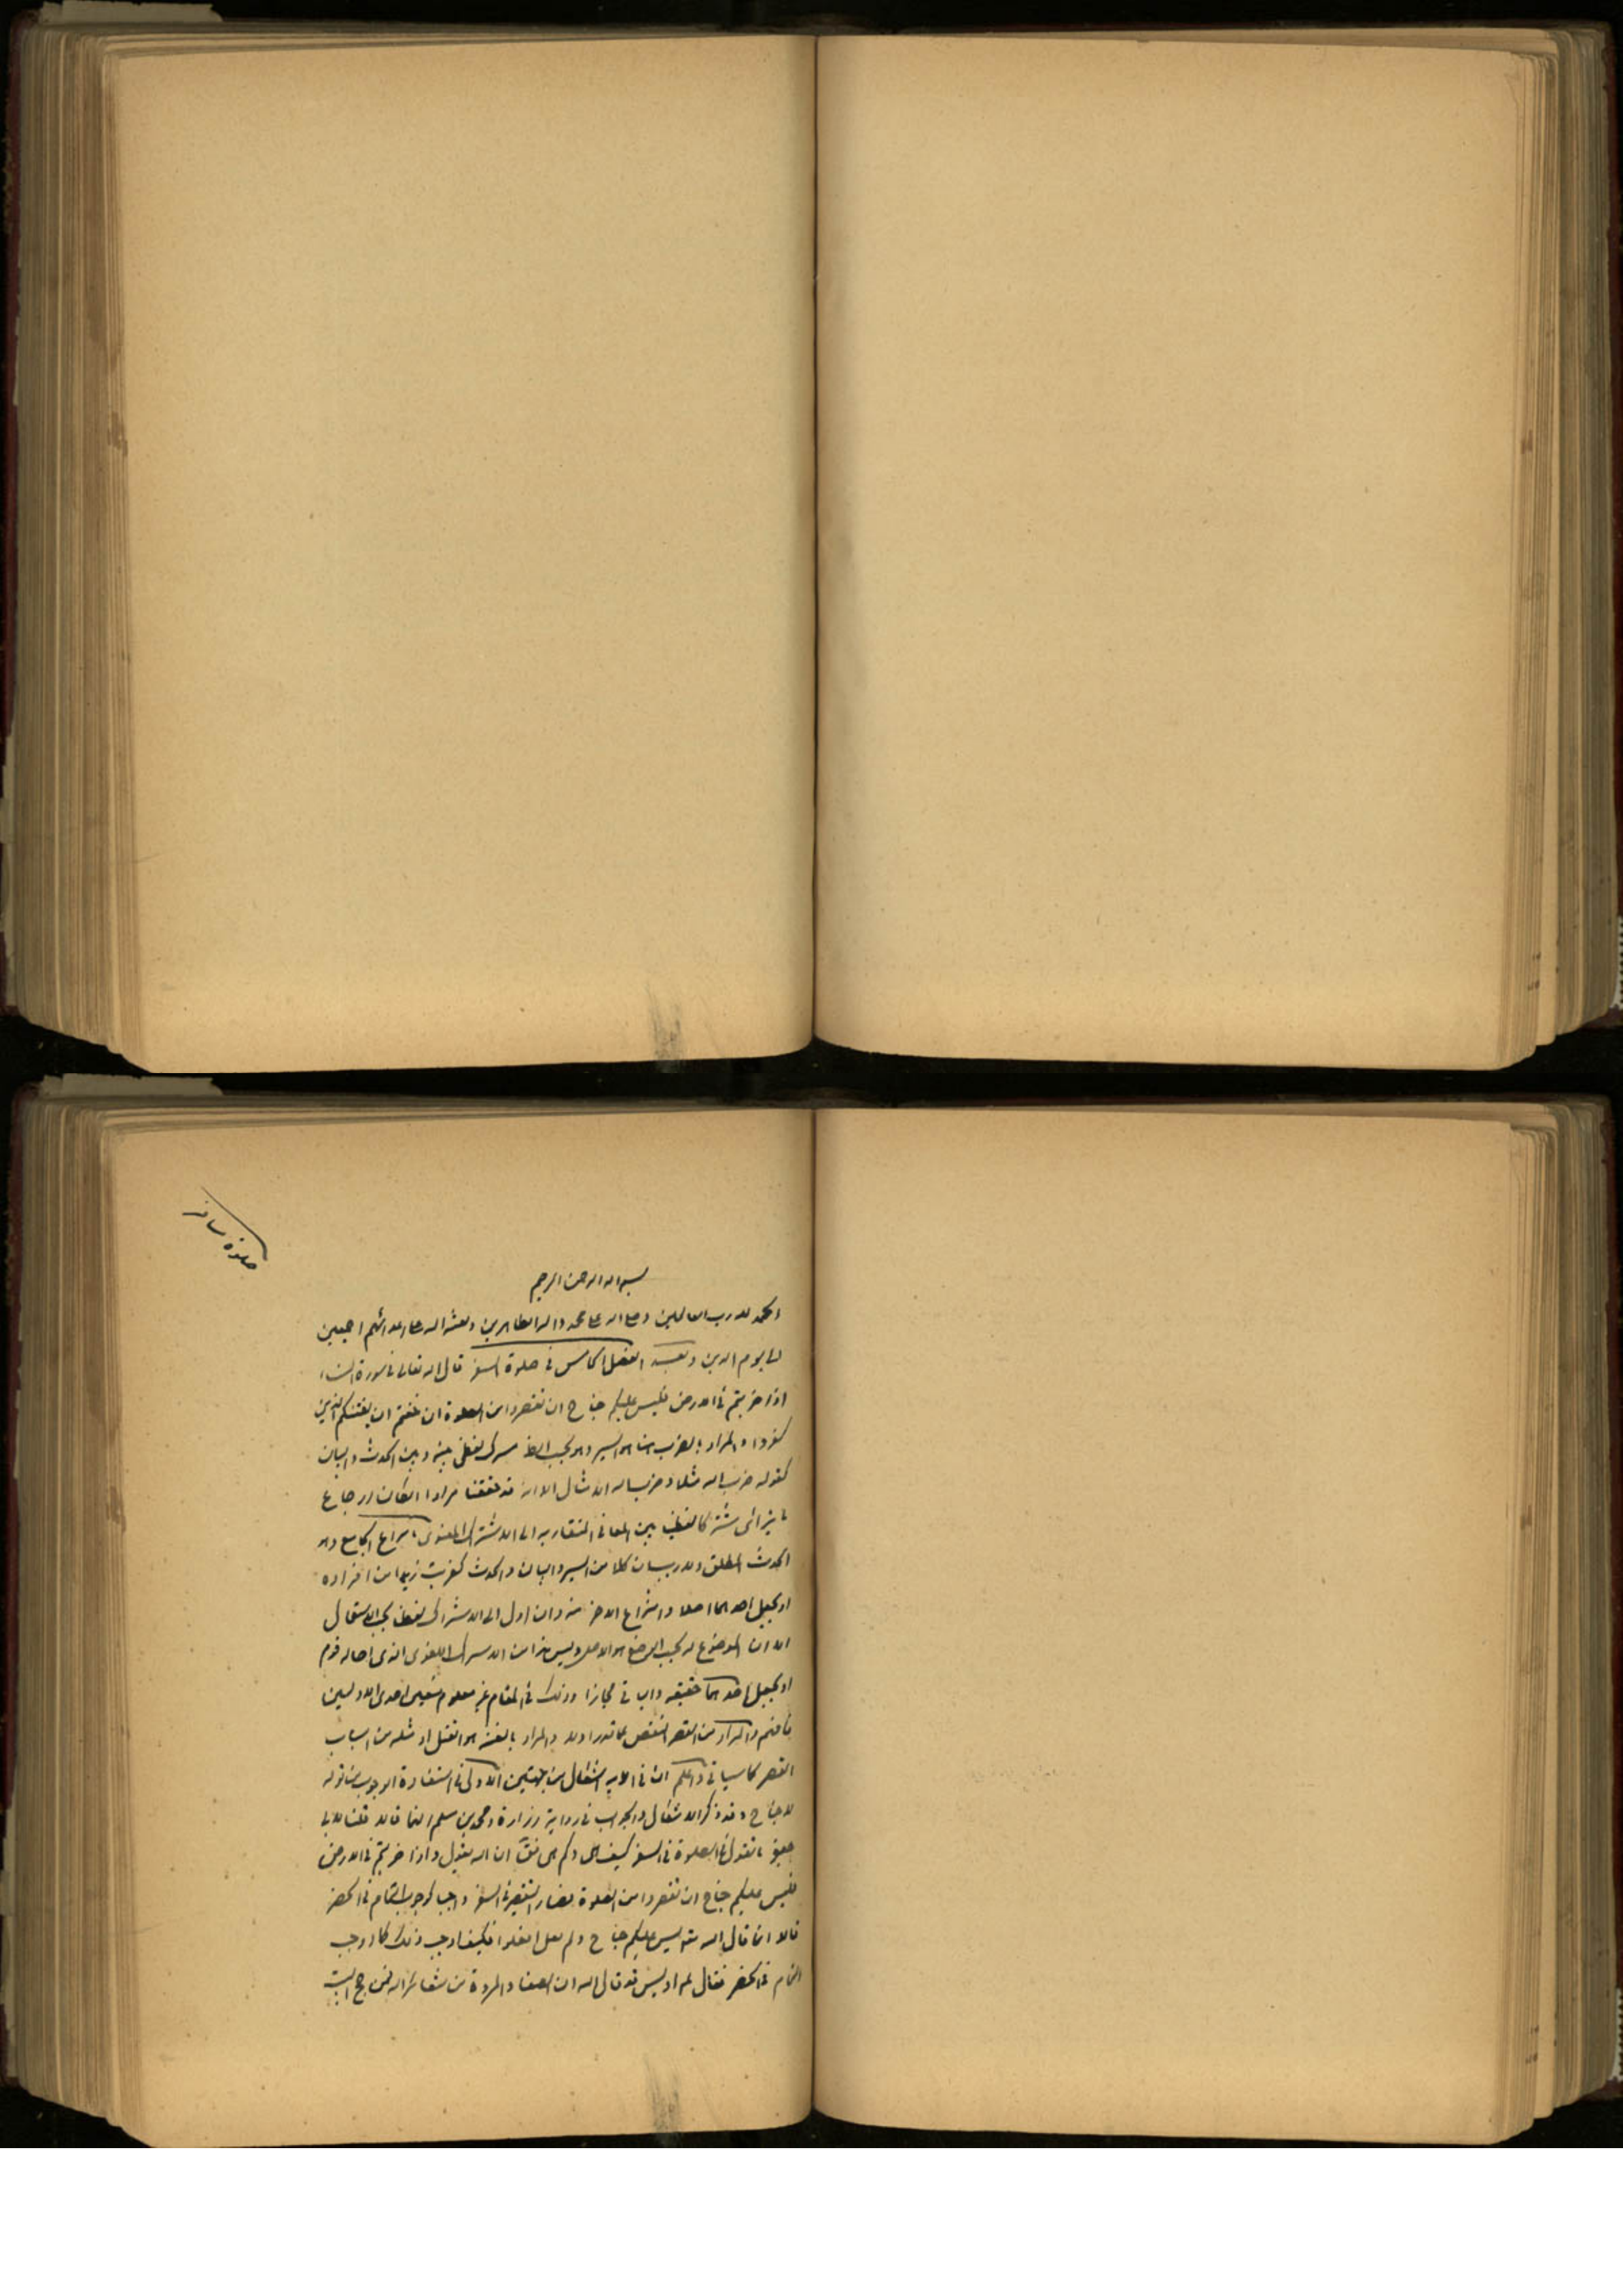 صلوة مسافر
بسم الله الرحمن الرحيم
الحمد لله رب العالمين وصلى الله على محمد واله الطاهرين ولعنة الله على اعدائهم اجمعين
الى يوم الدين وبعد الفصل الخامس في صلوة السفر قال الله تعالى في سورة النساء
اذا ضربتم في الارض فليس عليكم جناح ان تقصروا من الصلوة ان خفتم ان يفتنكم الذين
كفروا والمراد بالضرب هنا هو السير وهو بحسب الظ مشترك لفظي بينه وبين الحدث والبيان
كقوله ضرب الله مثلا وضرب الله الامثال الا انه قد حققنا مرارا امكان ارجاع
ما يترائى مشتركا لفظيا بين المعاني المتقاربه الى الاشتراك المعنوى بانتزاع الجامع وهو
الحدث المطلق كلا من السير والبيان والحدث كضربت زيدا من افراده
او بجعل احدهما اصلا وانتزاع الاخر منه وان اول الى الاشتراك لفظي بحسب الاستعمال
الا ان الموضوع له بحسب الوضع هو الاصل وليس هذا من الاشتراك اللفظى الذى احاله قوم
او بجعل احدهما حقيقه والباقي مجازا وذلك في المقام غير معلوم فتعين احدى الاوليين
فافهم والمراد من القصر النقص عما قدر اولا والمراد بالفتنه هو القتل او مثله من اسباب
القصر كما سياتي واعلم ان في الايه اشكال من جهتين الاولى في استفادة الوجوب من قوله
لا جناح وقد ذكر الاشكال والجواب في رواية زرارة ومحمد بن مسلم انهما قالا قلنا لابي
جعفر ما تقول في الصلوة في السفر كيف هى وكم هى فقال ان الله يقول واذا ضربتم في الارض
فليس عليكم جناح ان تقصروا من الصلوة فصار التقصير في السفر واجبا كوجوب التمام في الحضر
قالا انما قال الله تع ليس عليكم جناح ولم يقل افعلوا فكيف اوجب ذلك كما اوجب
التمام في الحضر فقال له اوليس قد قال الله ان الصفا والمروة من شعائر الله فمن حج البيت